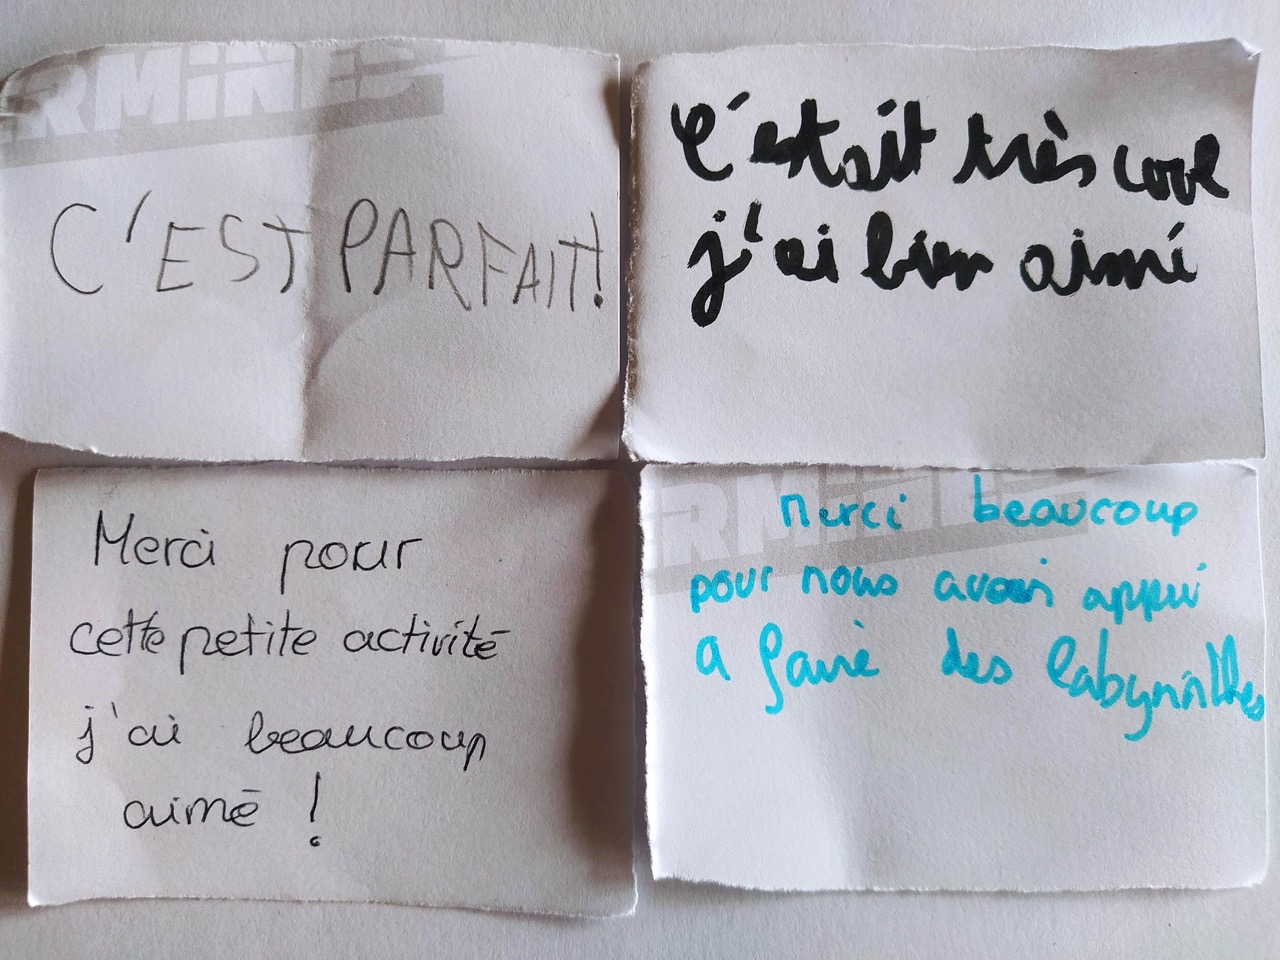 ERMINES
C'EST PARFAIT!
C'était très cool
j'ai bien aimé
Merci pour
cette petite activité
j'ai beaucoup
aimé !
ERMINES
Merci beaucoup
pour nous avoir appri
a faire des labyrinthes